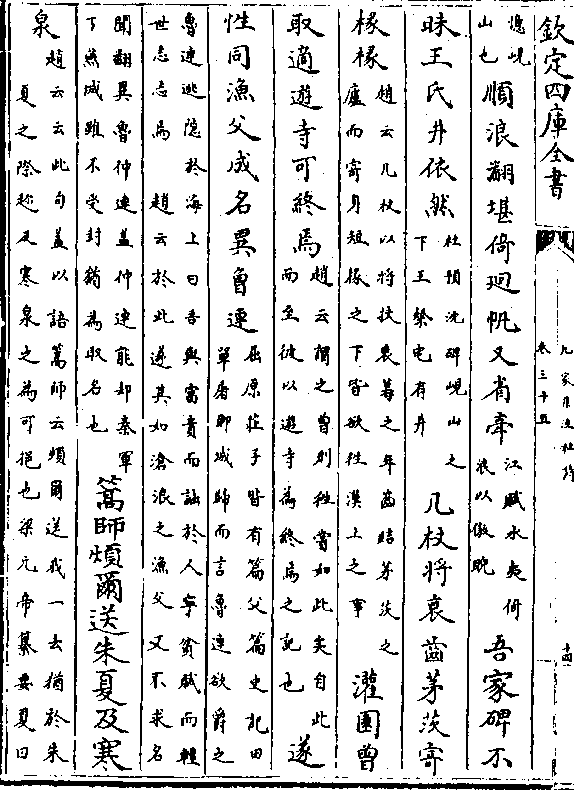 欽定四庫全書
九家集注杜詩
卷三十五
十四
憶峴
山也
順浪翻堪倚廻帆又省牽
江賦水夷倚
浪以傲睨
吾家碑不
昧王氏井依然
杜預沈碑峴山之
下王粲宅有井
几杖將衰齒茅茨寄
椽椽
趙云几杖以將扶衰暮之年齒結茅茨之
廬而寄身短椽之下皆欲往漢上之事
灌園曾
取適遊寺可終焉
趙云謂之曾則往嘗如此矣自此
而至彼以遊寺為終焉之記也
遂
性同漁父成名異魯連
屈原莊子皆有篇父篇史記田
單屠聊城歸而言魯連欲爵之
魯連逃隱於海上曰吾與富貴而詘於人寧貧賤而輕
世忘志焉 趙云於此遂其如滄浪之漁父又不求名
聞翻異魯仲連蓋仲連能却秦軍
下燕城雖不受封猶為取名也
篙師煩爾送朱夏及寒
泉
趙云云此句蓋以語篙師云煩爾送我一去猶於朱
夏之際趂及寒泉之為可挹也梁元帝纂要夏曰